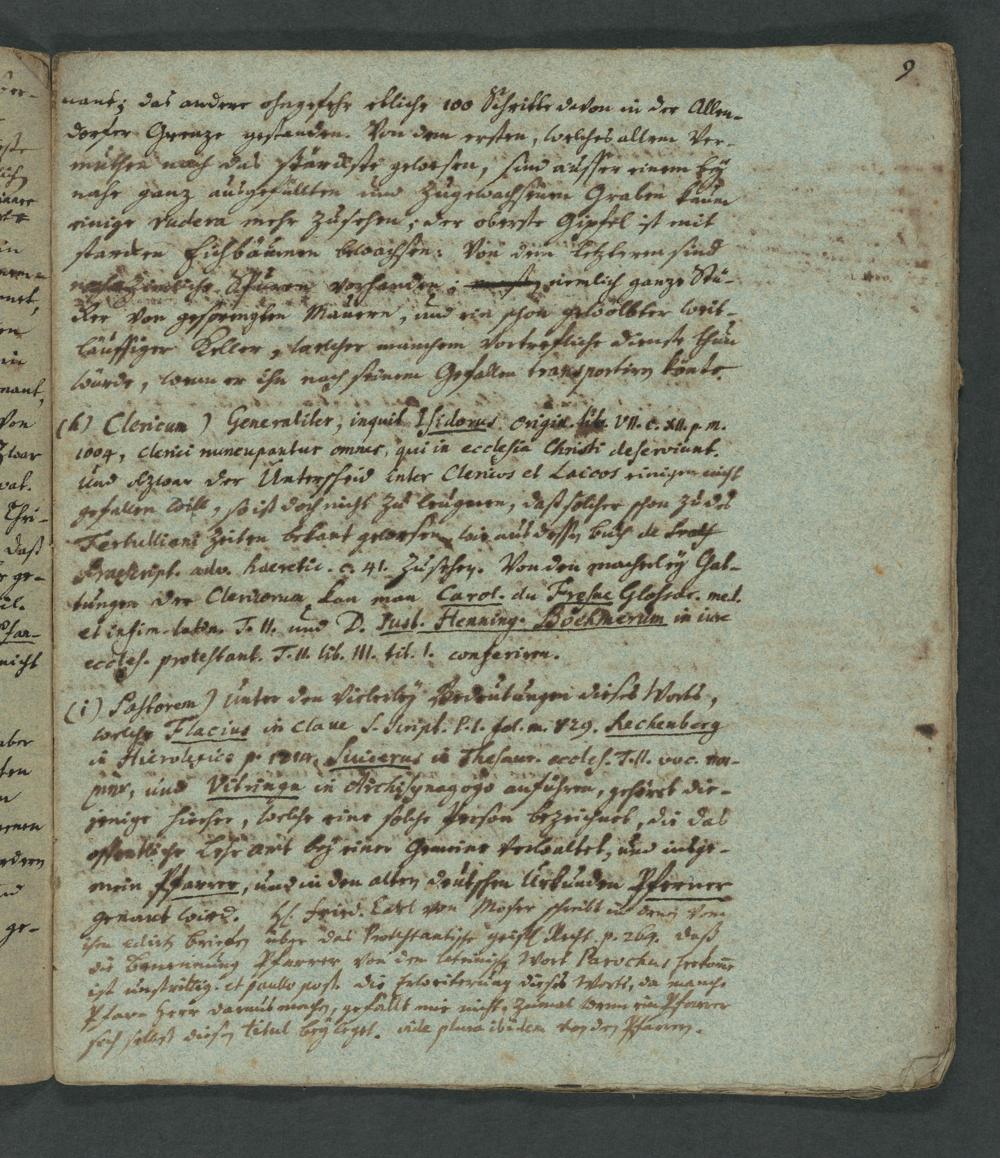 9
nant; das andere ohngefehr etliche 100 Schritte davon in der Allen-
dorfer Grenze gestanden. Von dem ersten, welches allem Ver-
muthen nach das stärckste gewesen, sind ausser einem bey
nahe ganz ausgefüllten und zugewachsenen Graben kaum
einige rudera mehr zusehen; der oberste Gipfel ist mit
starcken Eichbäumen bewachsen: Von dem letztern sind
Spuren vorhanden, nemlich ganze Stü-
cker von gesprengten Mauern, und ein schon gewölbter weit-
läuffiger Keller, welcher manchem vortrefliche dienste thun
würde, wenn er ihn nach seinem Gefallen transportiren könte.
(h) Clericum) Generaliter, inquit Isidorus Origin. lib. VII. c. XII. p. m.
1004, clerici nuncupantur omnes, qui in ecclesia Christi deserviunt.
Und obzwar der Unterscheid inter Clericos et Laicos einigen nicht
gefallen will, so ist doch nicht zu leugnen, daß solcher schon zu des
Tertulliani Zeiten bekant gewesen, wie aus dessen buch de
Praescript. adv. haeretic. c. 41. zusehen. Von den mancherley Gat-
tungen der Clericorum kan man Carol. du Fresne Glossar. med.
et infim. latin. T. II. und D. Just. Henning. Böehmerum in iure
eccles. protestant. T. II. lib. III. tit. I. conferiren.
(i) Pastorem) Unter den vielerley Bedeutungen dieses Worts,
welche Flacius in Clave S. Script. P. I. fol. m. 829. Rechenberg
in Hierolexico p. Suicerus in Thesaur. eccles. T. II. voc.
und Vitringa in Archisynagogo anführen, gehöret die-
jenige hierher, welche eine solche Person bezeichnet, die das
offentliche Lehramt bey einer Gemeine verwaltet, und insge-
mein Pfarrer, und in den alten deutschen Urkunden Pferner
genant wird. H. Fried. Carl von Moser schreibt in denen von
ihm edirten Briefen über das Protestantische geistl. Recht p. 269. daß
die Benennung Pfarrer von dem lateinischen Wort Parochus herkomme
ist unstrittig. et paullo post die Erweiterung dieses Worts, da manche
Pfarr Herr daraus machen, gefällt mir nicht, zumal wenn ein Pfarrer
sich selbst diesen titul beyleget. vide plura ibidem von den Pfarren.